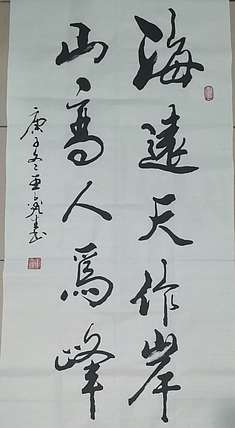 海遠天作岸
山高人爲峰
庚子冬